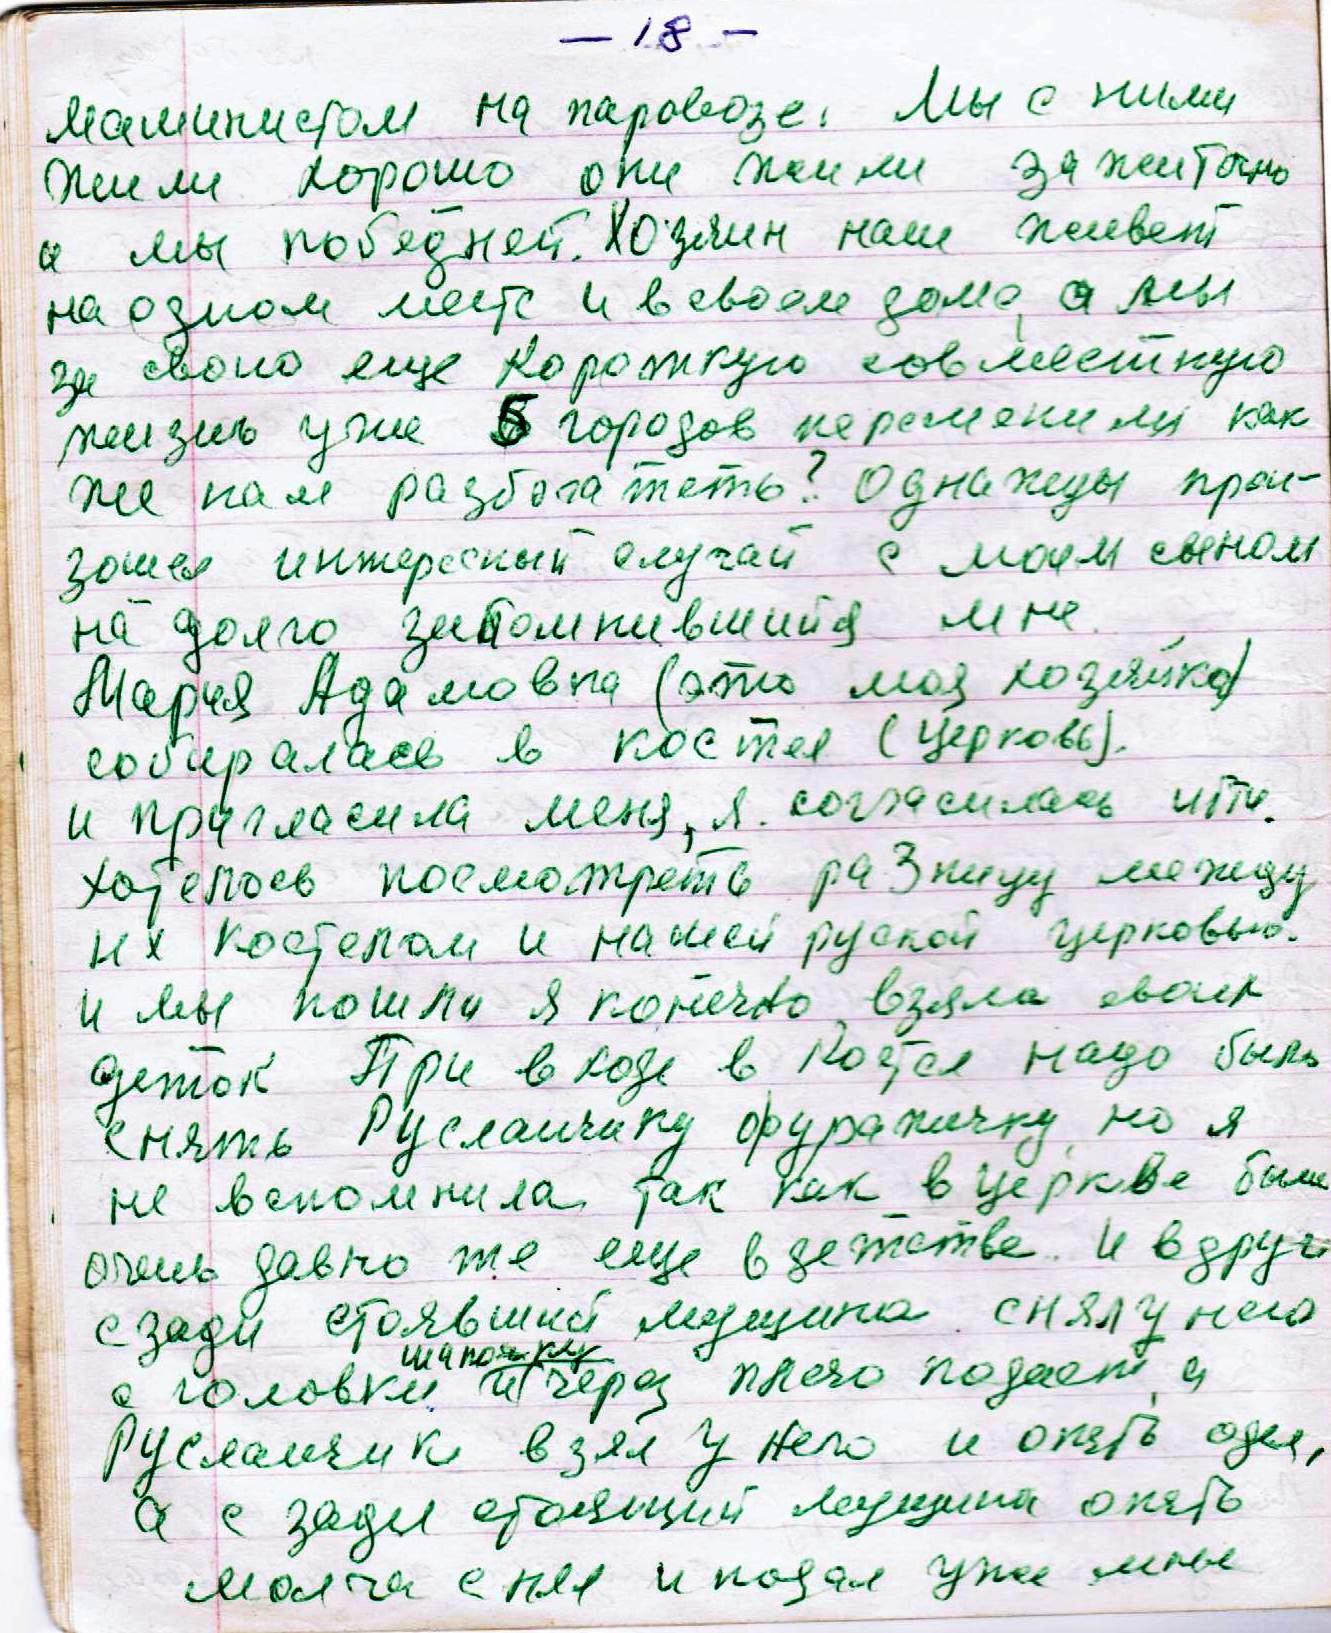 — 18 —
машинистом на паровозе. Мы с ними
жили хорошо они жили зажиточно
а мы победней. Хозяин наш живет
на одном месте и в своем доме, а мы
за свою еще короткую совместную
жизнь уже 5 городов переменили как
же нам разбогатеть? Однажды прои-
зошел интересный случай с моем сыном
на долго запомнившийся мне.
Мария Адамовна (это моя хозяйка)
собиралась в костел (церковь).
и пригласила меня, я согласилась идти.
хотелось посмотреть разницу между
их костелом и нашей руской церковью.
и мы пошли я конечно взяла своих
деток При входе в костел надо было
снять Русланчику фуражичку, но я
не вспомнила так как в церкве была
очень давно же еще в детстве. И вдруг
сзади стоявший мущина снял у него
шапочку
с головки и через плечо подает, а
Русланчик взял у него и опять одел,
а с зади стоящий мущина опять
молча снял и подал уже мне